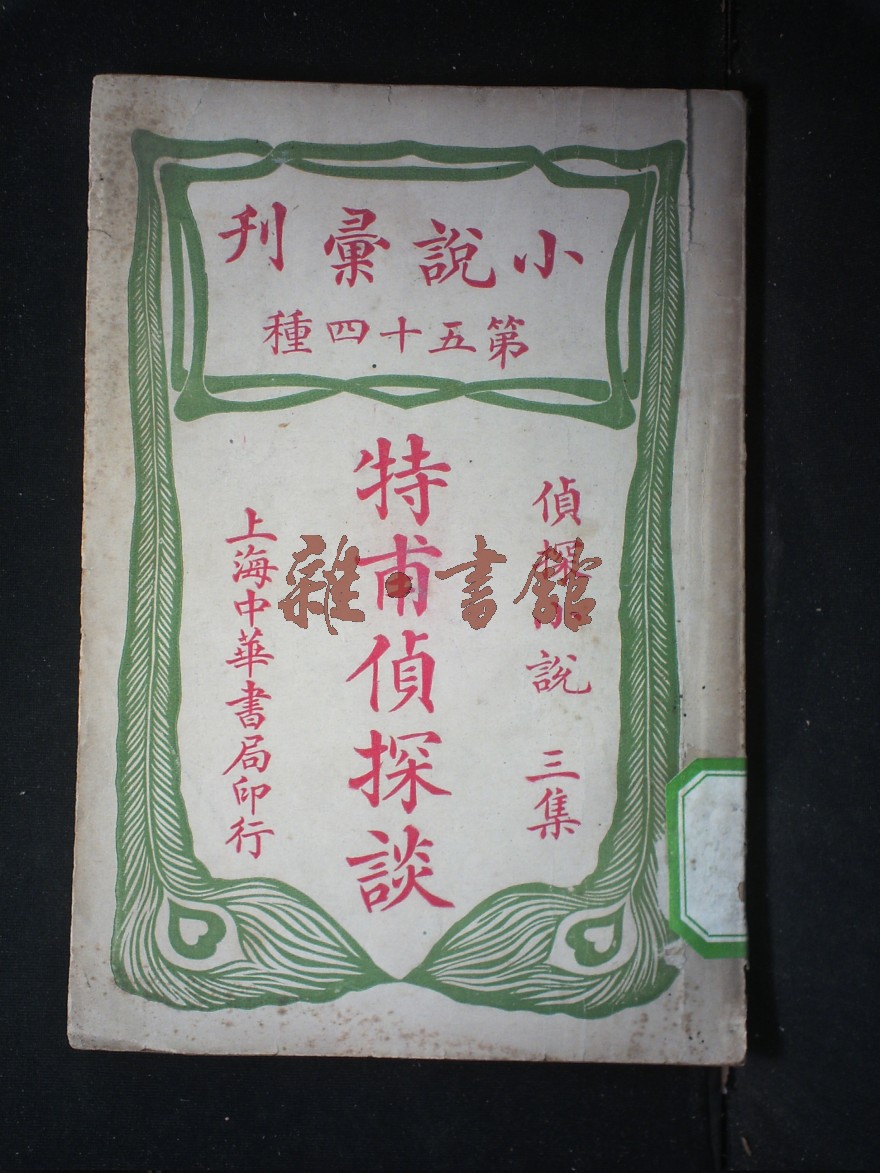 小說彙刊
第五十四種
偵探小說 三集
特甫偵探談
上海中華書局印行
雜·書館